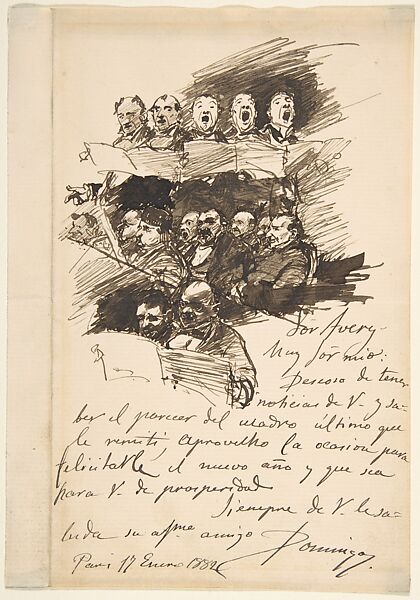 Sor Avery.
Muy Sor mio:
Deseoso de tener
noticias de V. y sa-
ber el parecer del cuadro último que
le remití aprovecho la ocasion para
felicitarle el nuevo año y que sea
para V. de prosperidad
Siempre de V. le sa-
luda su afmo. amigo Domingo
Paris 17 Enero 1882